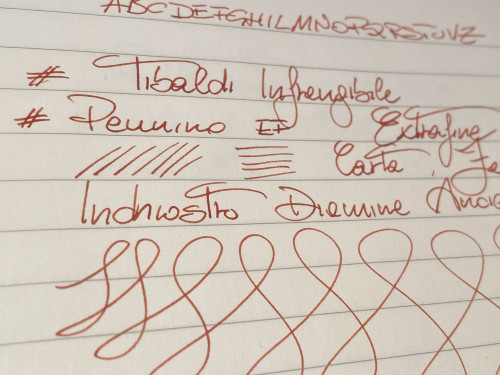 ABCDEFGHILMNOPQRSTUVZ
# Tibaldi Infrangibile
# Pennino EF Extrafine
Carta
Inchiostro Diamine